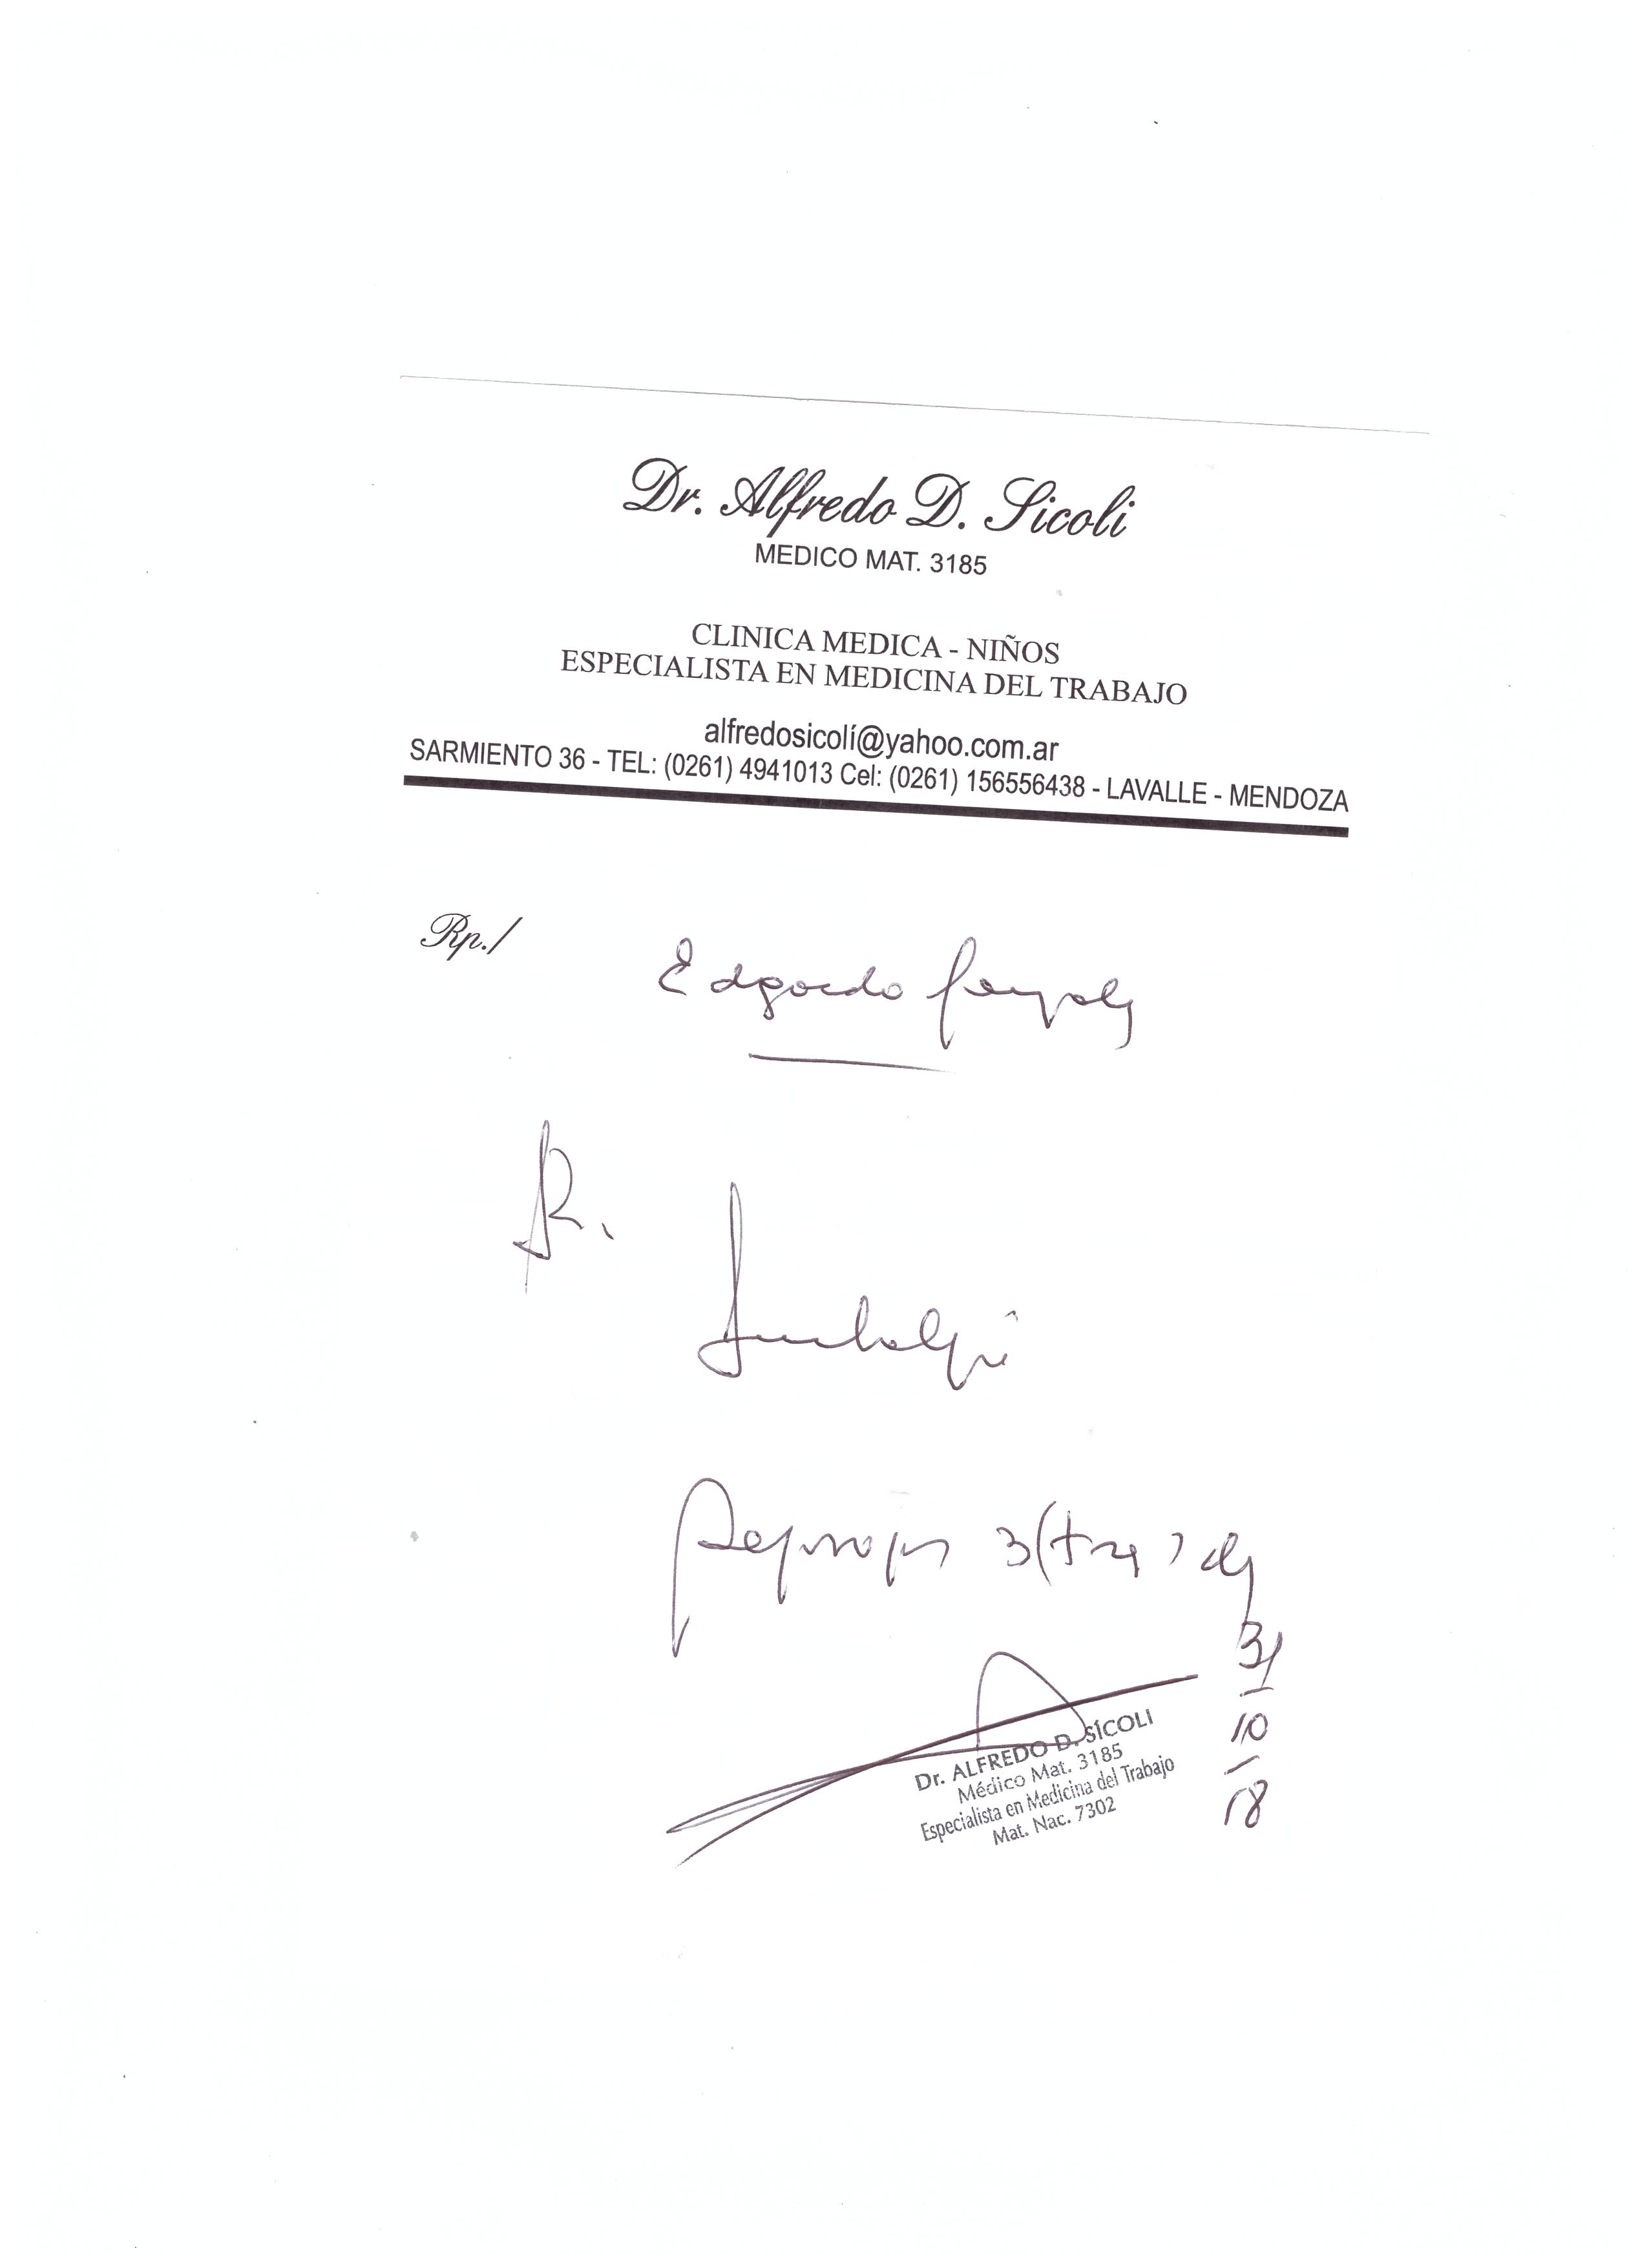 Dr. Alfredo D. Sicoli
MEDICO MAT. 3185
CLINICA MEDICA - NIÑOS
ESPECIALISTA EN MEDICINA DEL TRABAJO
alfredosicolí@yahoo.com.ar
SARMIENTO 36 - TEL: (0261) 4941013 Cel: (0261) 156556438 - LAVALLE - MENDOZA
Rp./
Edgardo
3 (tres)
31
10
18
Dr. ALFREDO D. SÍCOLI
Médico Mat. 3185
Especialista en Medicina del Trabajo
Mat. Nac. 7302